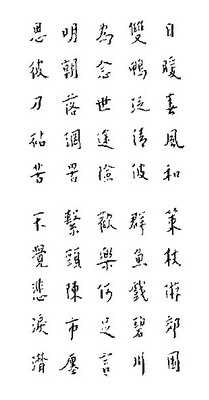 日暖春風和 策杖游郊園
雙鴨泛清波 群魚戲碧川
為念世途險 歡樂何足言
明朝落網罟 繫頸陳市廛
思彼刀砧苦 不覺悲淚潸